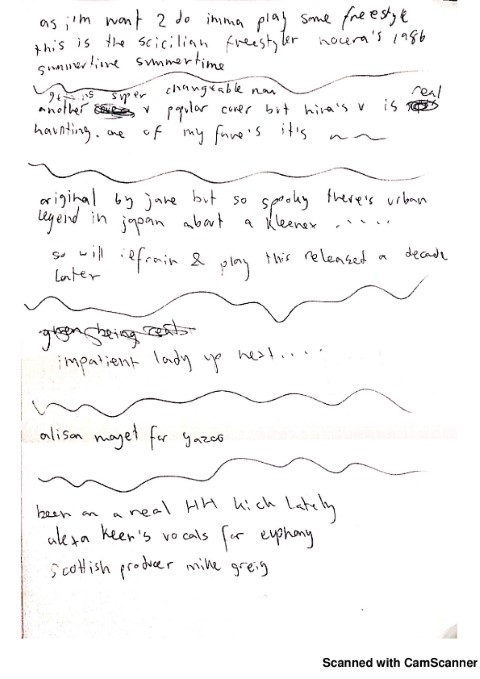 as i'm wont 2 do imma play some freestyle
this is the scicilian freestyler nocera's 1986
summertime summertime
it's super changeable now
another v popular cover but hira's v is real
haunting. one of my fave's it's
original by jane but so spooky there's urban
legend in japan about a kleenex .....
so will refrain & play this released a decade
later
impatient lady up next....
alison moyet for yazoo
been on a real HH kick lately
alexa keen's vocals for euphony
scottish producer mike greig
Scanned with CamScanner